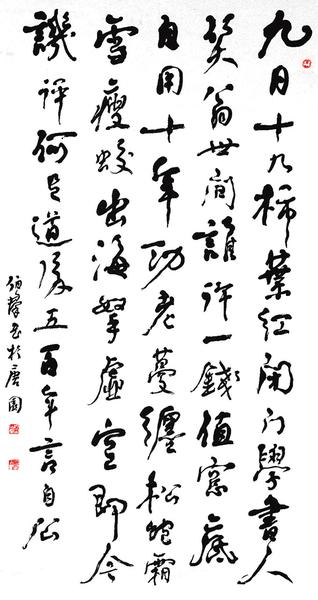 九月十九柿葉紅閉門學書人
笑翁世間誰許一錢值窗底
自用十年功老蔓纏松飽霜
雪瘦蛟出海拏虛空即今
譏評何足道後五百年言自公
書於唐園